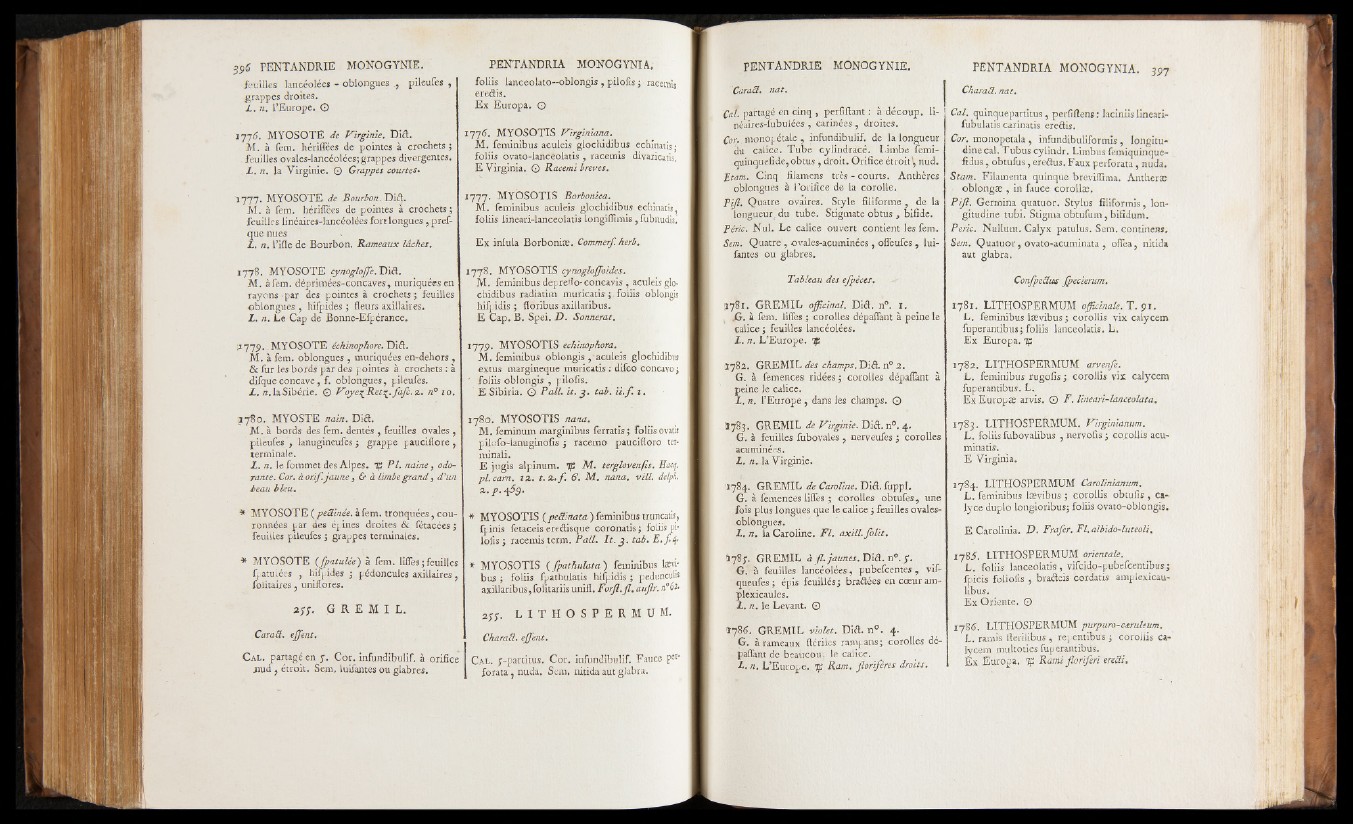 396 PENTANDRIE MONOGYNIE.
feuilles lancéolées - oblongues , pileuſes ,
grappes droites.
L. n. l'Europe. ☉
1776. MYOSOTE de Virginie. Dict.
M. à ſem. hériſſées de pointes à crochets ;
feuilles ovales-lancéolées; grappes divergentes.
L. n. la Virginie. ☉ Grappes courtes.
1777. MYOSOTE de Bourbon. Dict.
M. à ſem. hériſſées de pointes à crochets ;
feuilles linéaires-lancéolées fort longues , preſ-
que nues
L. n. l'iſle de Bourbon. Rameaux lâches.
1778. MYOSOTE cynogloſſe. Dict.
M. à ſem. déprimées-concaves, muriquées en
rayons par des pointes à crochets ; feuilles
oblongues , hiſpides ; fleurs axillaires.
L. n. Le Cap de Bonne-Eſpérance.
1779. MYOSOTE échinophore. Dict.
M. à ſem. oblongues , muriquées en-dehors ,
& ſur les bords par des pointes à crochets : à
diſque concave , f. oblongues , pileuſes.
L. n. la Sibérie. ☉ Voyez Retz. faſc. 2. n° 10.
1780. MYOSTE nain. Dict.
M. à bords des ſem. dentés , feuilles ovales ,
pileuſes , lanugineuſes ; grappe pauciflore ,
terminale.
L. n. le ſommet des Alpes. ♃ Pl. naine , odo-
rante. Cor. à orif. jaune , & à limbe grand , d'un
beau bleu.
* MYOSOTE ( pectinée. à ſem. tronquées , cou-
ronnées par des épines droites & ſétacées ;
feuilles pileuſes ; grappes terminales.
* MYOSOTE (ſpatulée) à ſem. liſſes ; feuilles
ſpatulées , hiſpides ; pédoncules axillaires ,
ſolitaires , uniflores.
255. GREMIL.
Caract. eſſent.
CAL. partagé en 5. Cor. infundibulif. à orifice
nud , étroit. Sem. luiſantes ou glabres.
PENTANDRIA MONOGYNIA.
foliis lanceolato-oblongis , piloſis ; racemis
erectis.
Ex Europa. ☉
1776. MYOSOTIS Virginiana.
M. ſeminibus aculeis glochidibus echinatis ;
foliis ovato-lanceolatis , racemis divaricatis.
E Virginia. ☉ Racemi breves.
1777. MYOSOTIS Borbonica.
M. ſeminibus aculeis glochidibus echinatis,
foliis lineari-lanceolatis longiſſimis , ſubnudis.
Ex inſula Borboniæ. Commerſ. herb.
1778. MYOSOTIS cynogloſſoides.
M. ſeminibus depreſſo-concavis , aculeis glo-
chidibus radiatim muricatis ; foliis oblongis
hiſpidis ; floribus axillaribus.
E Cap. B. Spei. D. Sonnerat.
1779. MYOSOTIS echinophora.
M. ſeminibus oblongis , aculeis glochidibus
extus margineque muricatis : diſco concavo ;
foliis oblongis , piloſis.
E Sibiria. ☉ Pall. it. 3. tab. ii. f. 1.
1780. MYOSOTIS nana.
M. ſeminum marginibus ſerratis ; foliis ovatis
piloſo-lanuginoſis ; racemo paucifloro ter-
minali.
E jugis alpinum. ♃ M. terglovenſis. Hacq.
pl. carn. 12. t. 2. f. 6. M. nana. vill. delph.
2. p. 459.
* MYOSOTIS ( pectinata ) ſeminibus truncatis,
ſpinis ſetaceis erectisque coronatis ; foliis pi-
loſis ; racemis term. Pall. It. 3. tab. E. f. 4.
* MYOSOTIS ( ſpathulata ) ſeminibus lævi-
bus ; foliis ſpathulatis hiſpidis ; pedunculis
axillaribus, ſolitariis unifl. Forſt. fl. auſtr. n° 62.
255. LITHOSPERMUM.
Charact. eſſent.
CAL. 5-partitus. Cor. infundibulif. Fauce per-
forata , nuda. Sem. nitida aut glabra.
PENTANDRIE MONOGYNIE.
Caract. nat.
Cal. partagé en cinq , perſiſtant : à découp. li-
néaires-ſubulées , carinées , droites.
Cor. monopétale , infundibulif. de la longueur
du calice. Tube cylindracé. Limbe ſemi-
quinquefide, obtus , droit. Orifice étroit, nud.
Etam. Cinq filamens très - courts. Anthères
oblongues à l'orifice de la corolle.
Piſt. Quatre ovaires. Style filiforme , de la
longueur du tube. Stigmate obtus , bifide.
Péric. Nul. Le calice ouvert contient les ſem.
Sem. Quatre , ovales-acuminées , oſſeuſes , lui-
ſantes ou glabres.
Tableau des eſpèces.
1781. GREMIL officinal. Dict. n°. 1.
G. à ſem. liſſes ; corolles dépaſſant à peine le
calice ; feuilles lancéolées.
L. n. L'Europe. ♃
1782. GREMIL des champs. Dict. n° 2.
G. à ſemences ridées ; corolles dépaſſant à
peine le calice.
L. n. l'Europe , dans les champs. ☉
1783. GREMIL de Virginie. Dict. n°. 4.
G. à feuilles ſubovales , nerveuſes ; corolles
acuminées.
L. n. la Virginie.
1784. GREMIL de Caroline. Dict. ſuppl.
G. à ſemences liſſes ; corolles obtuſes, une
fois plus longues que le calice ; feuilles ovales-
oblongues.
L. n. la Caroline. Fl. axill. ſolit.
1785. GREMIL à fl. jaunes. Dict. n°. 5.
G. à feuilles lancéolées, pubeſcentes , viſ-
queuſes ; épis feuillés ; bractées en cœur am-
plexicaules.
L. n. le Levant. ☉
1786. GREMIL violet. Dict. n°. 4.
G. à rameaux ſtériles rampans ; corolles dé-
paſſant de beaucoup le calice.
L. n. L'Europe. ♃ Ram. florifères droits.
PENTANDRIA MONOGYNIA. 397
Charact. nat.
Cal. quinquepartitus , perſiſtens : laciniis lineari-
ſubulatis carinatis erectis.
Cor. monopetala , infundibuliformis , longitu-
dine cal. Tubus cylindr. Limbus ſemiquinque-
fidus , obtuſus , erectus. Faux perforata , nuda.
Stam. Filamenta quinque breviſſima. Antheræ
oblongæ , in fauce corollæ.
Piſt. Germina quatuor. Stylus filiformis , lon-
gitudine tubi. Stigma obtuſum , bifidum.
Peric. Nullum. Calyx patulus. Sem. continens.
Sem. Quatuor , ovato-acuminata , oſſea , nitida
aut glabra.
Conſpectus ſpecierum.
1781. LITHOSPERMUM officinale. T. 91.
L. ſeminibus lævibus ; corollis vix calycem
ſuperantibus ; foliis lanceolatis. L.
Ex Europa. ♃
1782. LITHOSPERMUM arvenſe.
L. ſeminibus rugoſis ; corollis vix calycem
ſuperantibus. L.
Ex Europæ arvis. ☉ F. lineari-lanceolata.
1783. LITHOSPERMUM. Virginianum.
L. foliis ſubovalibus , nervoſis ; corollis acu-
minatis.
E Virginia.
1784. LITHOSPERMUM Carolinianum.
L. ſeminibus lævibus ; corollis obtuſis , ca-
lyce duplo longioribus; foliis ovato-oblongis.
E Carolinia. D. Fraſer. Fl. albido-luteoli.
1785. LITHOSPERMUM orientale.
L. foliis lanceolatis , viſcido-pubeſcentibus ;
ſpicis folioſis , bracteis cordatis amplexicau-
libus.
Ex Oriente. ☉
1786. LITHOSPERMUM purpuro-cæruleum.
L. ramis ſterilibus , repentibus ; corollis ca-
lycem multoties ſuperantibus.
Ex Europa. ♃ Rami floriferi erecti.